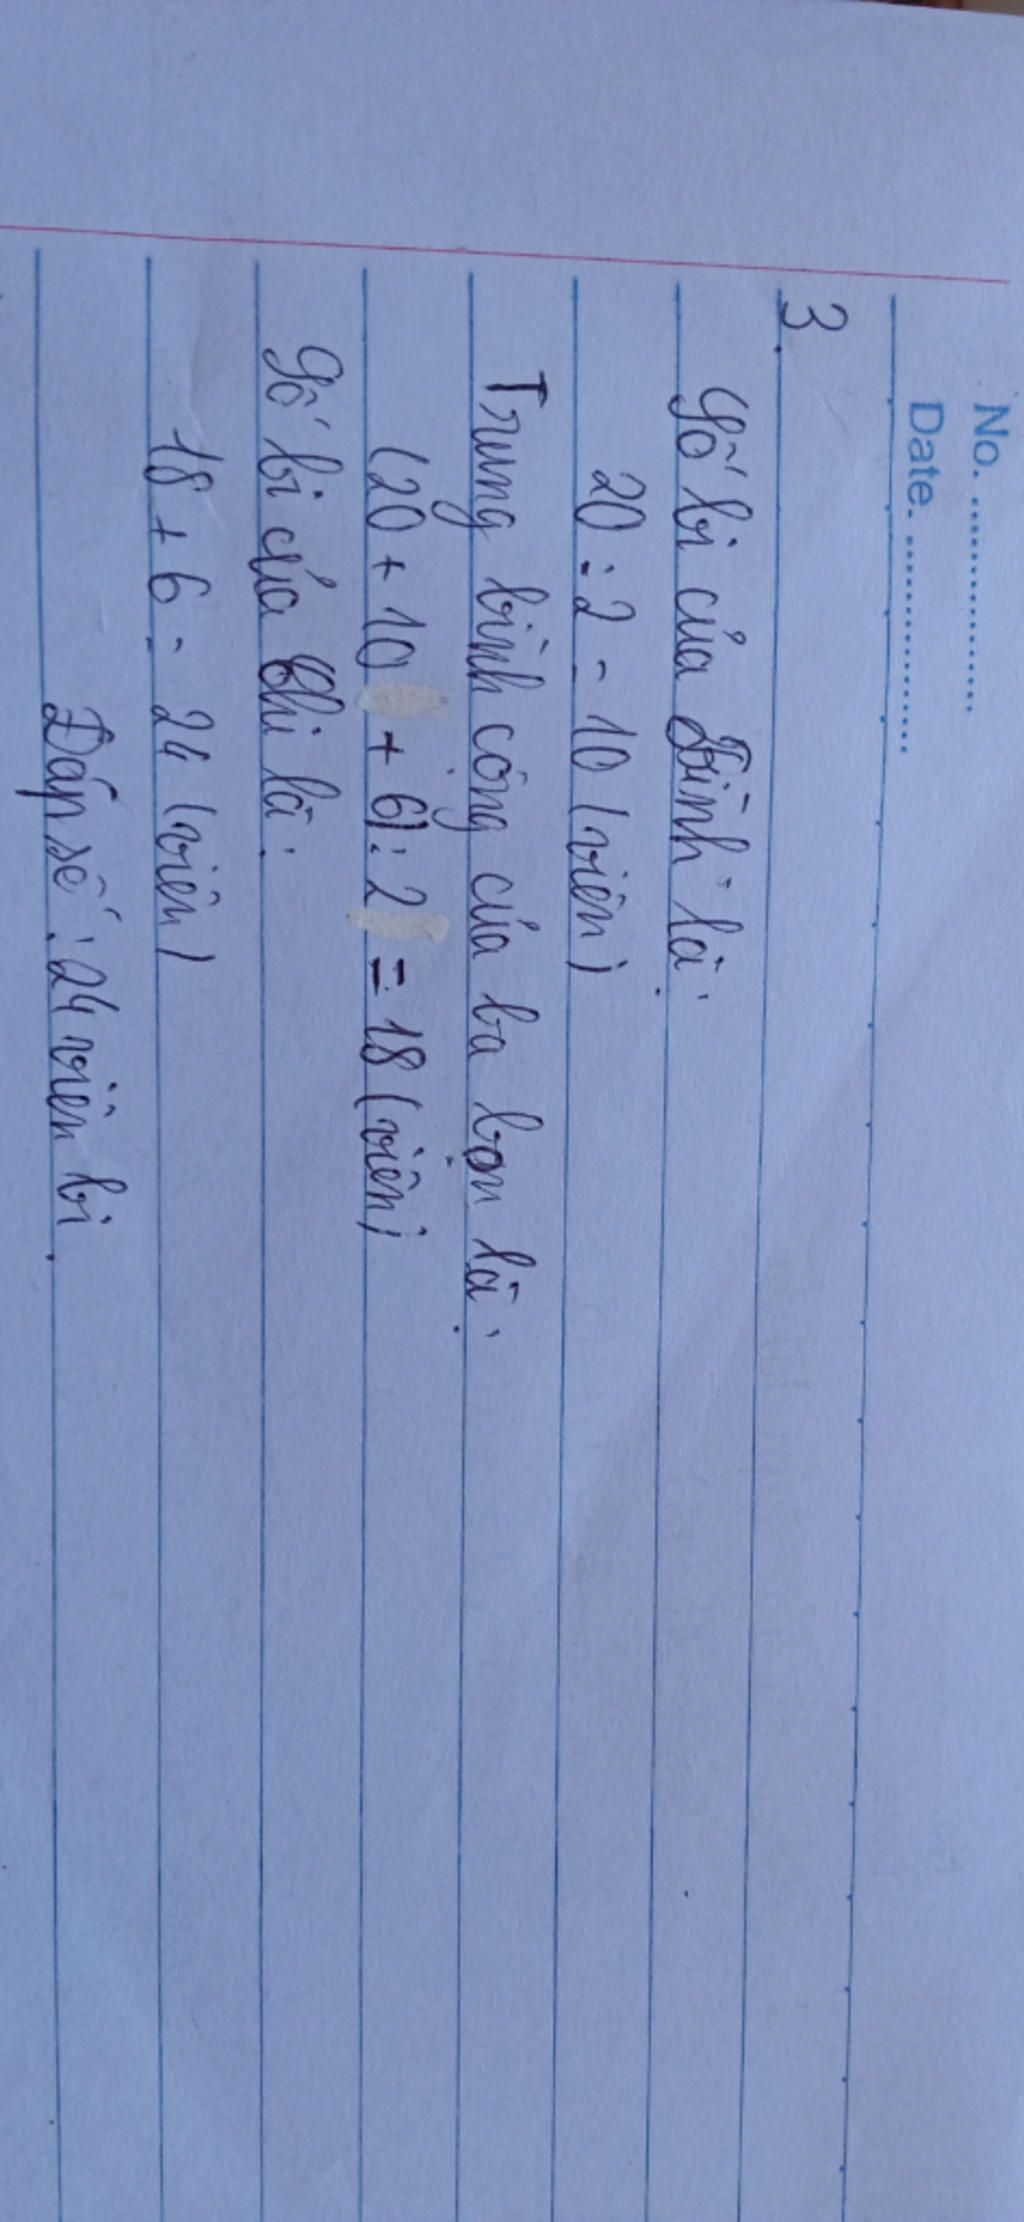 No. ..................
Date. ..................
3.
Số bi của Bình là:
20 : 2 = 10 (viên)
Trung bình cộng của ba bạn là:
(20 + 10 + 6) : 2 = 18 (viên)
Số bi của Chi là:
18 + 6 = 24 (viên)
Đáp số : 24 viên bi.